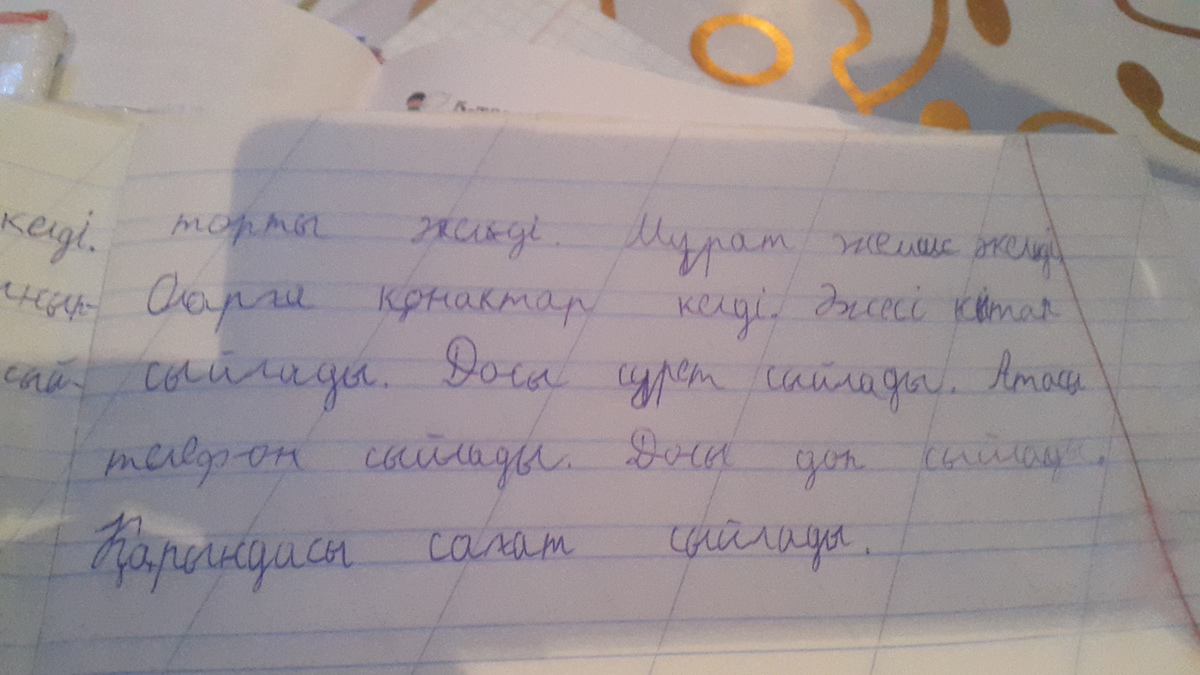 келді. торты желді. Мұрат жеміс желді
Оларға қонақтар келді. Әжесі кітап
сый- сыйлады. Досы сурет сыйлады. Атасы
телефон сыйлады. Досы доп сыйлады.
Қарындасы сағат сыйлады.